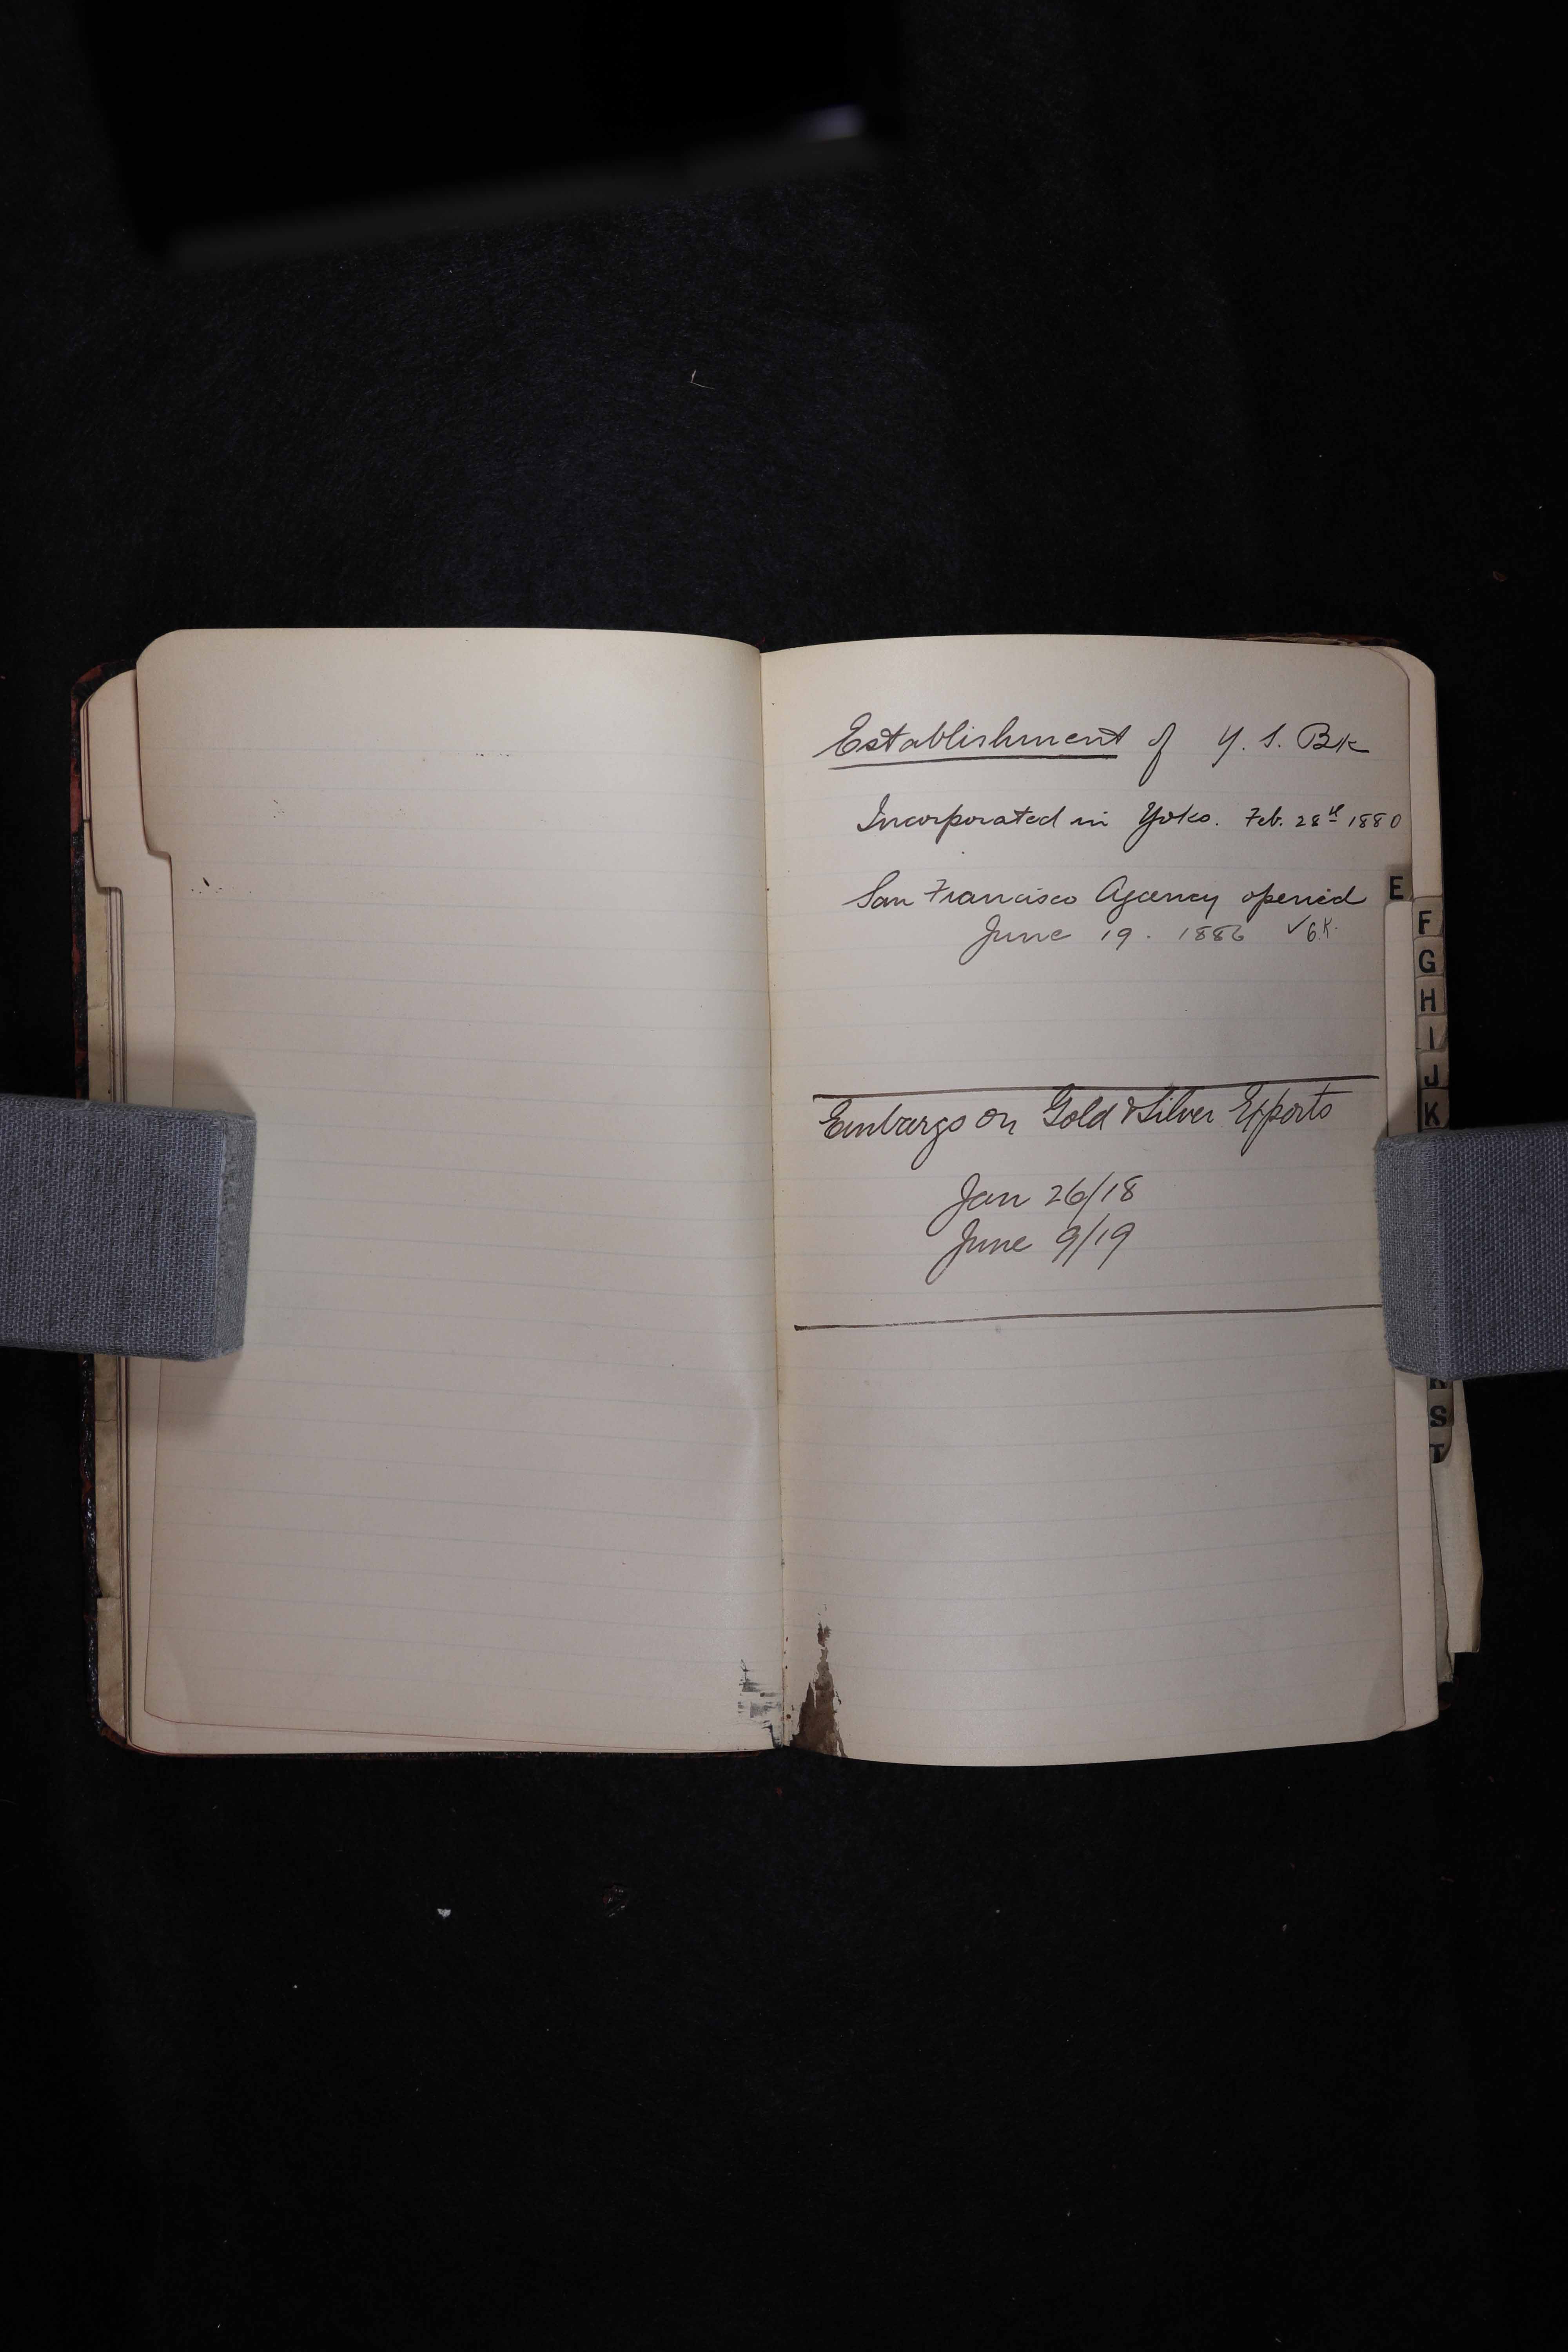 Establishment of Y. S. Bk
Incorporated in Yoko. Feb. 28th 1880
San Francisco Agency opened
June 19. 1886 ✓G.K.
Embargo on Gold & Silver Exports
Jan 26/18
June 9/19
E
F
G
H
I
J
K
R
S
T